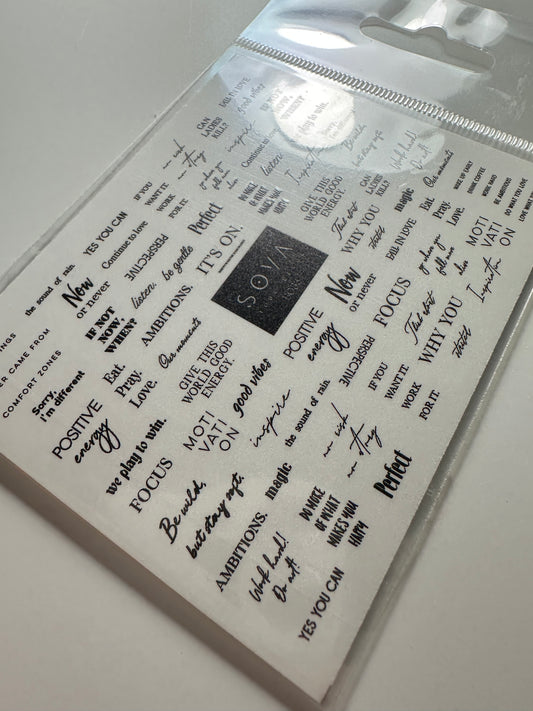 FALL IN LOVE
good vibes
CAN
LADIES
KILL?
IF NOT
NOW,
WHEN?
we play to win.
inspire
Continue to love
listen.
Be wild,
but stay soft.
Work hard!
Do art!
Our moments
WAKE UP EARLY
DRINK COFFEE
WORK HARD
BE AMBITIOUS
DO WHAT YOU LOVE
CAN
LADIES
KILL?
magic
Eat.
Pray.
Love.
MOTI
VATI
ON
IF YOU
WANT IT
WORK
FOR IT
Perfect
DO MORE
OF WHAT
MAKES YOU
HAPPY
GIVE THIS
WORLD GOOD
ENERGY.
WHY YOU
started
FALL IN LOVE
YES YOU CAN
Continue to love
PERSPECTIVE
be gentle
listen.
IT'S ON.
SOVA
Now
or never
FOCUS
the sound of rain
Now
or never
IF NOT
NOW,
WHEN?
AMBITIONS.
Our moments
POSITIVE
energy
PERSPECTIVE
WHY YOU
started
CAME FROM
COMFORT ZONES
Sorry,
i'm different
Eat.
Pray.
Love.
GIVE THIS
WORLD GOOD
ENERGY.
good vibes
the sound of rain
IF YOU
WANT IT
WORK
FOR IT
POSITIVE
energy
we play to win.
MOTI
VATI
ON
inspire
no risk
no story
FOCUS
Be wild,
but stay soft.
magic
Perfect
AMBITIONS.
Work hard!
Do art!
DO MORE
OF WHAT
MAKES YOU
HAPPY
YES YOU CAN